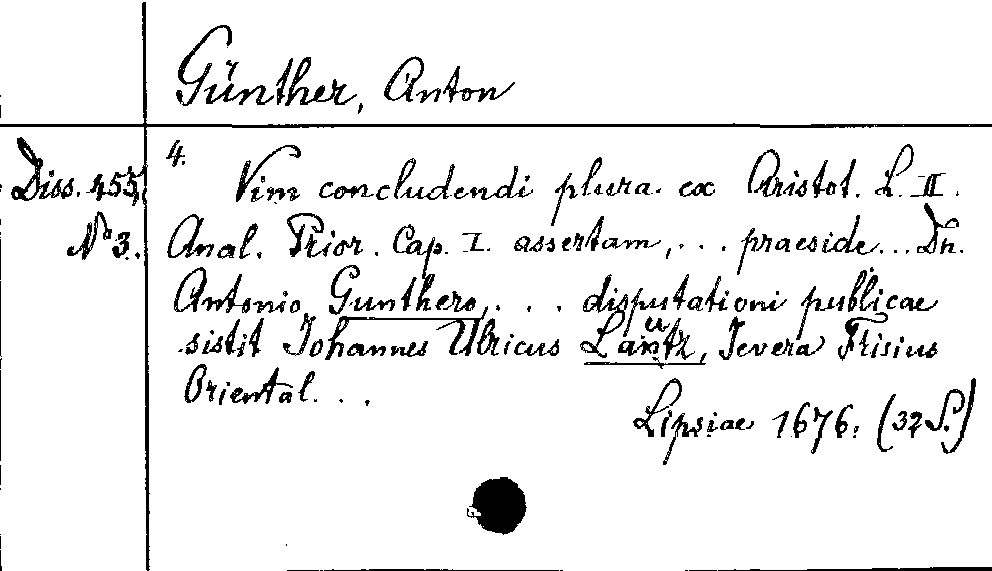 Günther, Anton
Diss. 455,
N° 3.
4.
Vim concludendi plura ex Aristot. L. II.
Anal. Prior. Cap. I. assertam, ... praeside ... Dn.
Antonio Gunthero, ... disputationi publicae
sistit Johannes Ulricus Jevera Frisius
Oriental. ...
Lipsiae 1676. (32 S.)